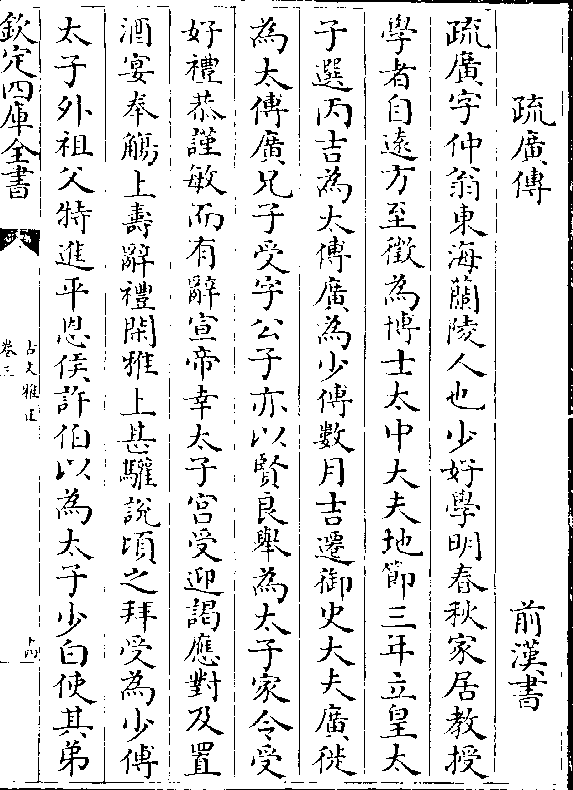 疏廣傳　前漢書
疏廣字仲翁東海蘭陵人也少好學明春秋家居教授
學者自遠方至徵為博士太中大夫地節三年立皇太
子選丙吉為太傅廣為少傅數月吉遷御史大夫廣徙
為太傅廣兄子受字公子亦以賢良舉為太子家令受
好禮恭謹敏而有辭宣帝幸太子宮受迎謁應對及置
酒宴奉觴上壽辭禮閑雅上甚驩說頃之拜受為少傅
太子外祖父特進平恩侯許伯以為太子少白使其弟
欽定四庫全書
古文雅正
卷三
十四